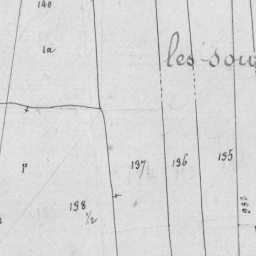 140
1a
les sou
P
197
196
195
198
1/2